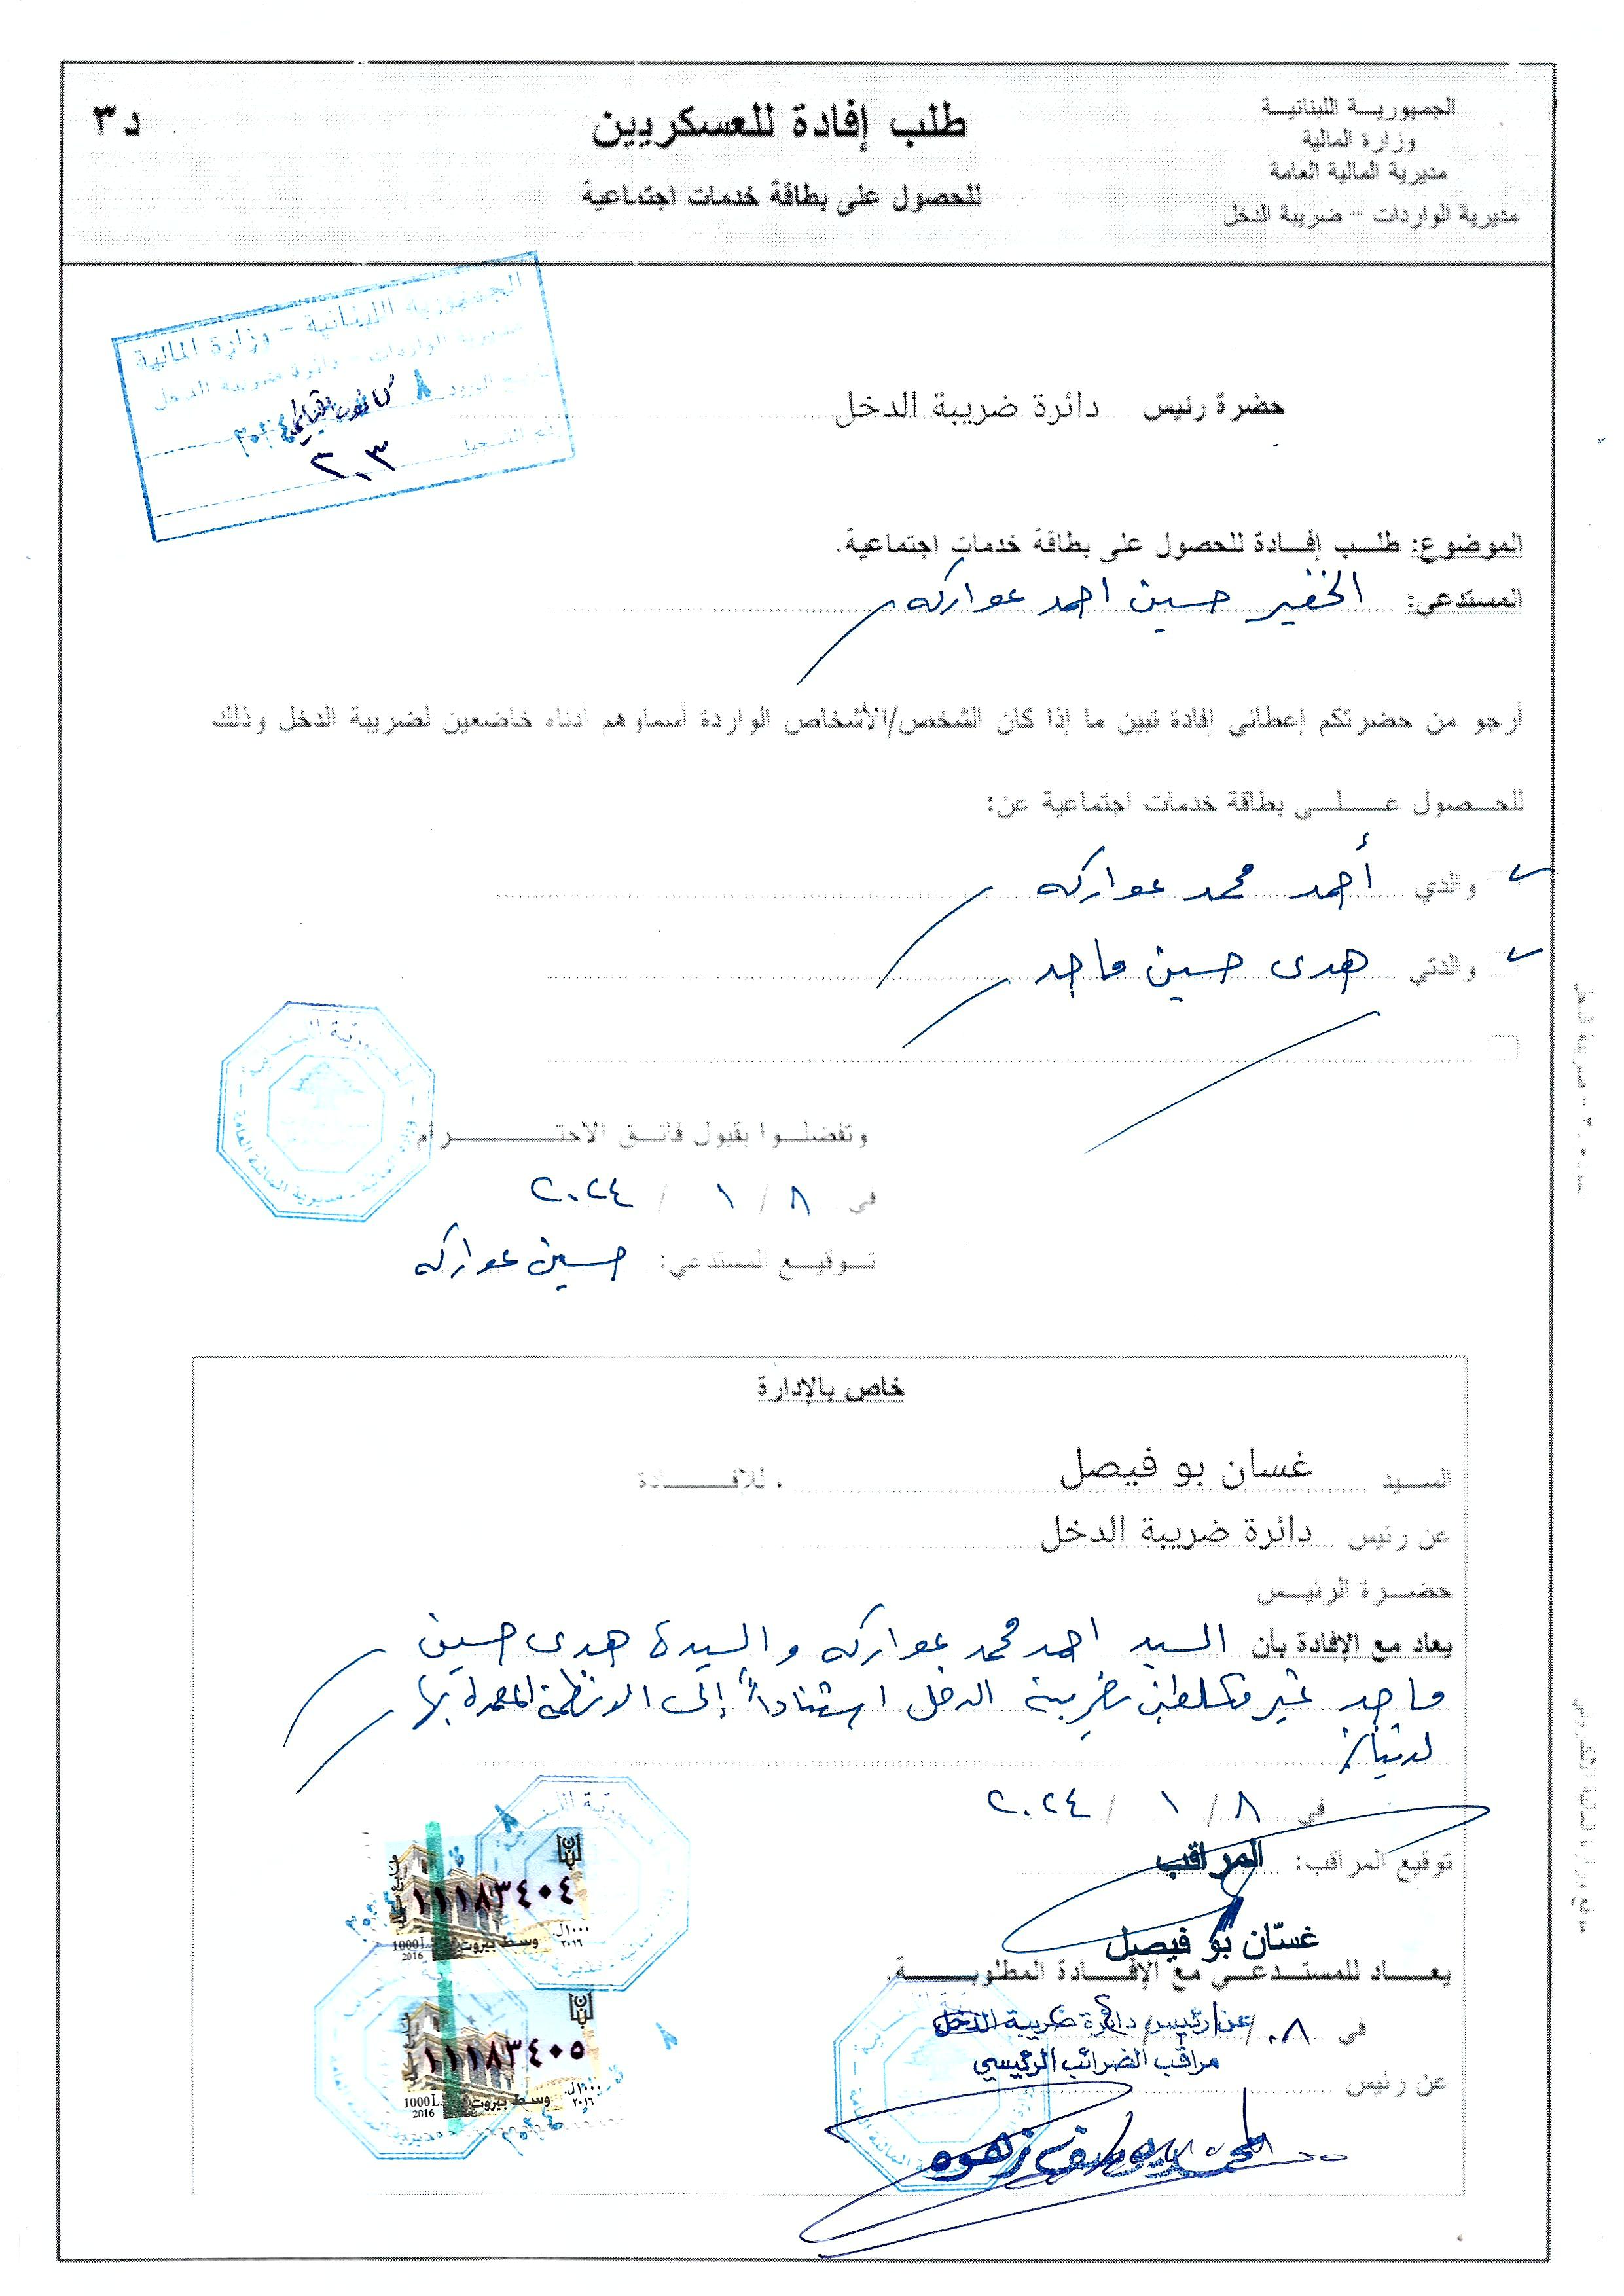 الجمهورية اللبنانية
وزارة المالية
مديرية المالية العامة
مديرية الواردات - ضريبة الدخل
طلب إفادة للعسكريين
للحصول على بطاقة خدمات اجتماعية
د٣
الجمهورية اللبنانية - وزارة المالية
مديرية الواردات - دائرة ضريبة الدخل
تاريخ الورود ٨ كانون الثاني ٢٠٢٤
رقم التسجيل
٢٠٣
حضرة رئيس دائرة ضريبة الدخل
الموضوع: طلب إفادة للحصول على بطاقة خدمات اجتماعية.
المستدعي: الخفير حسين احمد عواركه
أرجو من حضرتكم إعطائي إفادة تبين ما إذا كان الشخص/الأشخاص الواردة أسماؤهم أدناه خاضعين لضريبة الدخل وذلك
للحصول على بطاقة خدمات اجتماعية عن:
والدي أحمد محمد عواركه
والدتي هدى حسين ماجد
وتفضلوا بقبول فائق الاحترام
في ٨ / ١ / ٢٠٢٤
توقيع المستدعي: حسين عواركه
خاص بالإدارة
السيد غسان بو فيصل . للافادة
عن رئيس دائرة ضريبة الدخل
حضرة الرئيس
يعاد مع الإفادة بأن السيد احمد محمد عواركه والسيدة هدى حسين
ماجد غير مكلفين بضريبة الدخل استناداً إلى الانظمة المعمول بها
لدينا
في ٨ / ١ / ٢٠٢٤
توقيع المراقب: المراقب
غسّان بو فيصل
يعاد للمستدعي مع الإفادة المطلوبة.
في ٨
عن رئيس دائرة ضريبة الدخل
مراقب الضرائب الرئيسي
عن رئيس
زهوه
١١١٨٣٤٠٤
١٠٠٠ل.
٢٠١٦
وسط بيروت
1000L.
2016
١١١٨٣٤٠٥
١٠٠٠ل.
٢٠١٦
وسط بيروت
1000L.
2016